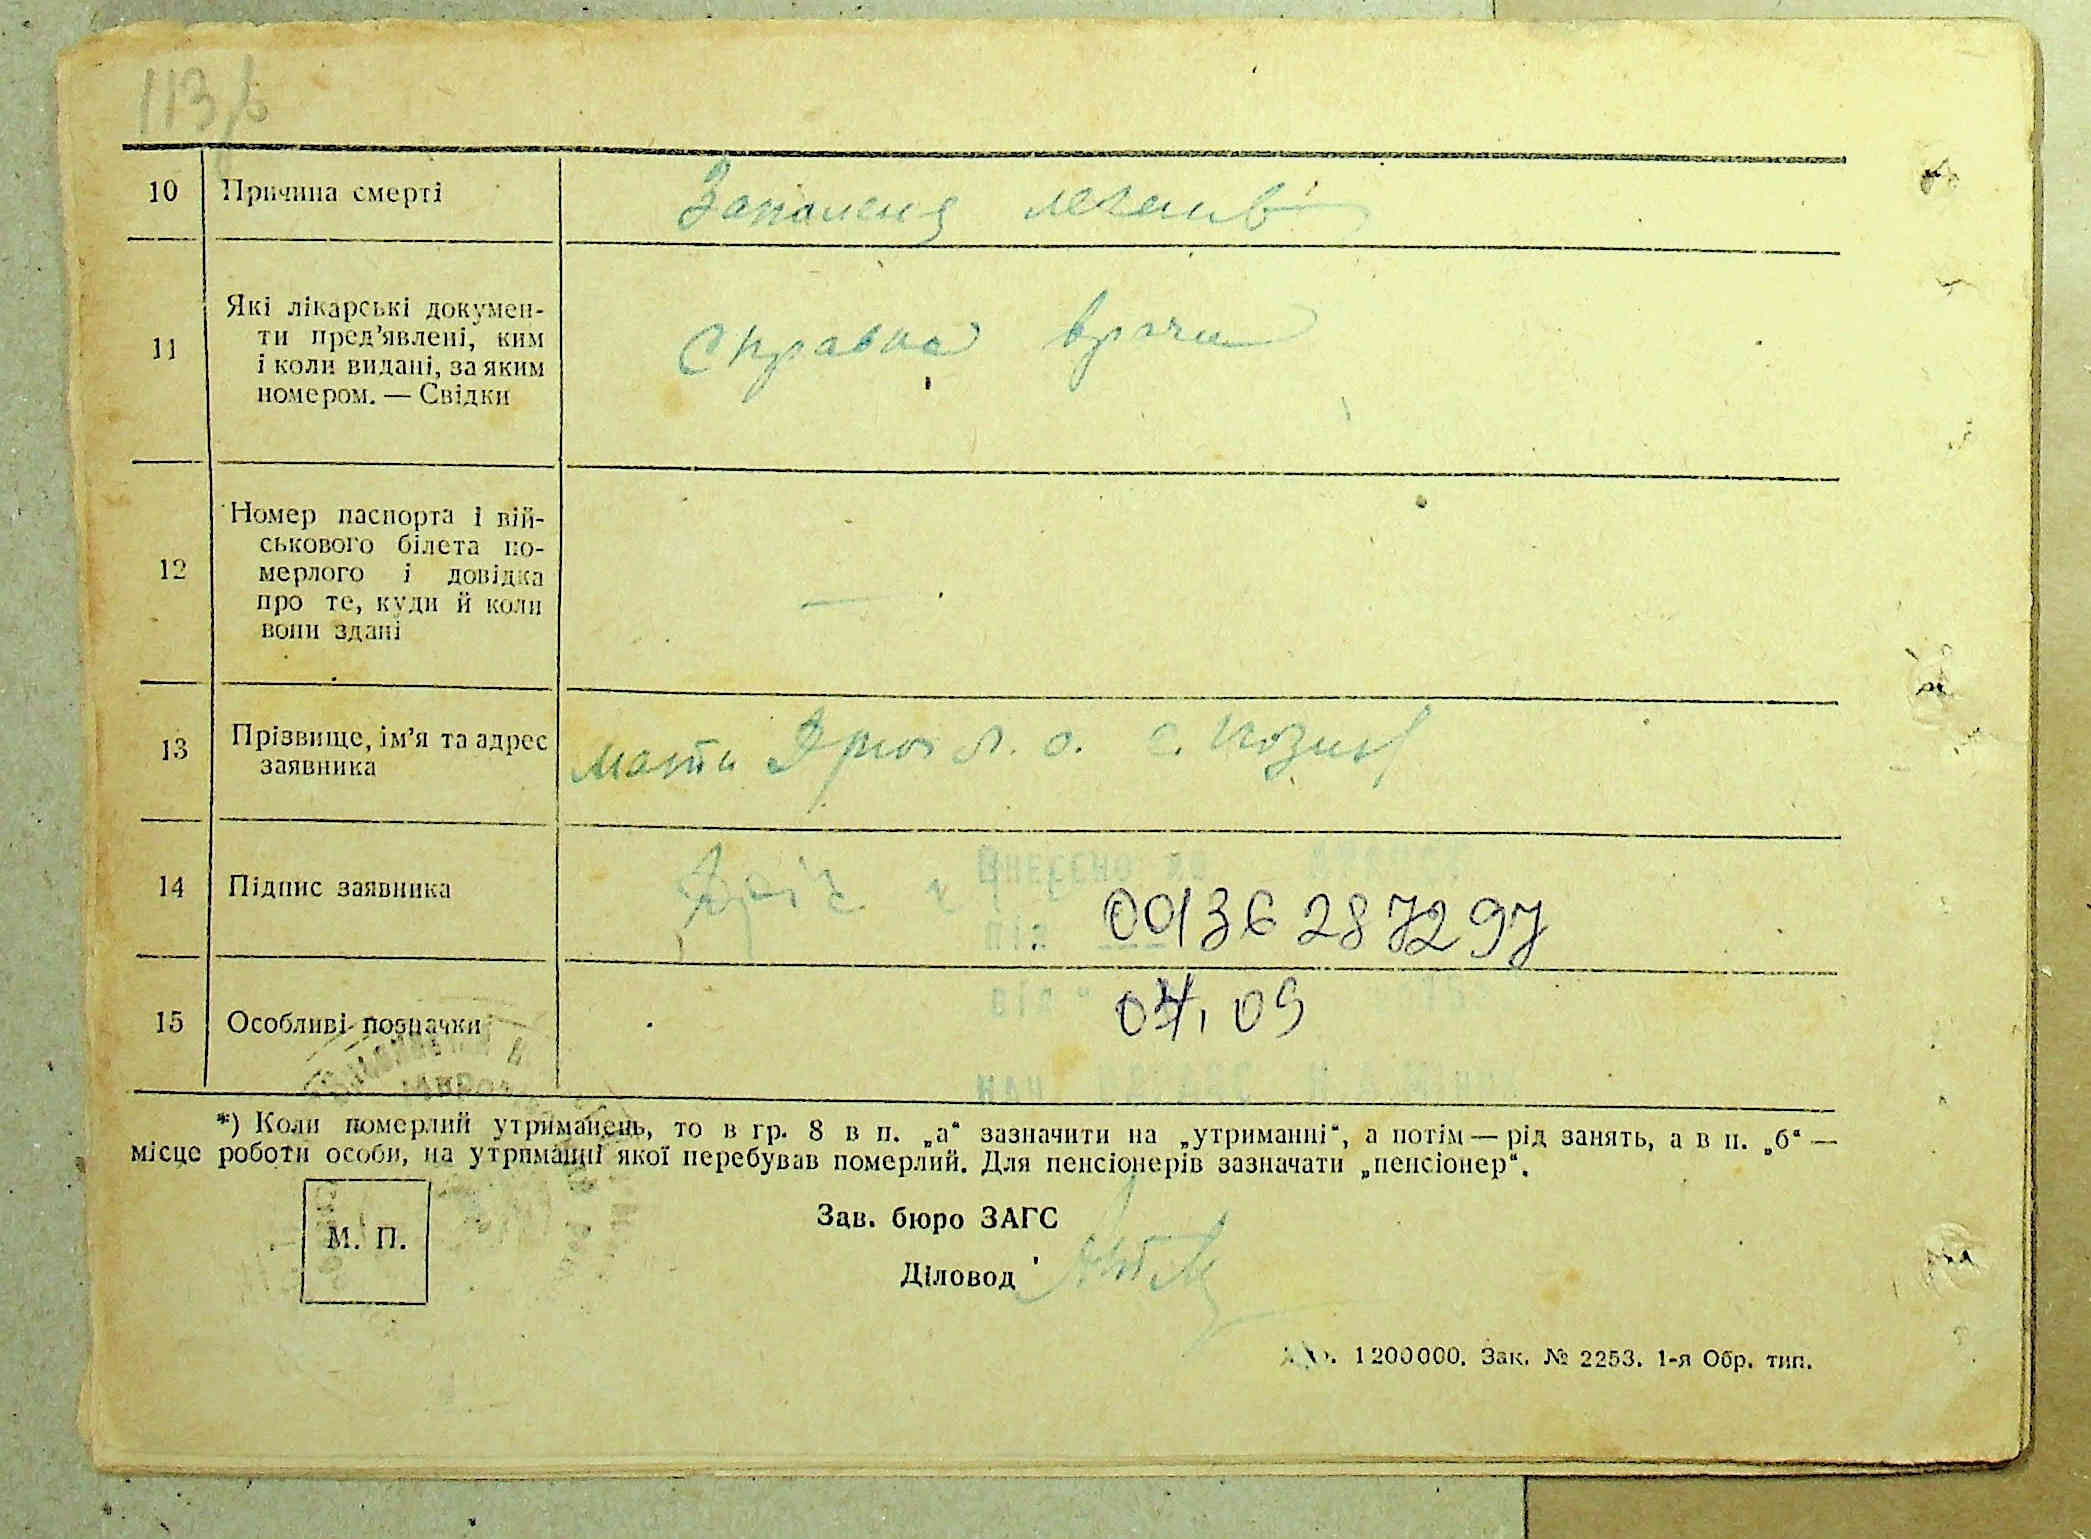 113
10 Причина смерті Запаленя легенів
11 Які лікарські докумен-
ти пред’явлені, ким
і коли видані, за яким
номером. — Свідки
Справка врача
12 Номер паспорта і вій-
ськового білета по-
мерлого і довідка
про те, куди й коли
вони здані
—
13 Прізвище, ім’я та адрес
заявника
мати с.
14 Підпис заявника
00136287297
15 Особливі позначки 04.09
*) Коли померлий утриманець, то в гр. 8 в п. „а“ зазначити на „утриманні“, а потім — рід занять, а в п. „б“ —
місце роботи особи, на утриманні якої перебував померлий. Для пенсіонерів зазначати „пенсіонер“.
М. П.
Зав. бюро ЗАГС
Діловод
1200000. Зак. № 2253. 1-я Обр. тип.